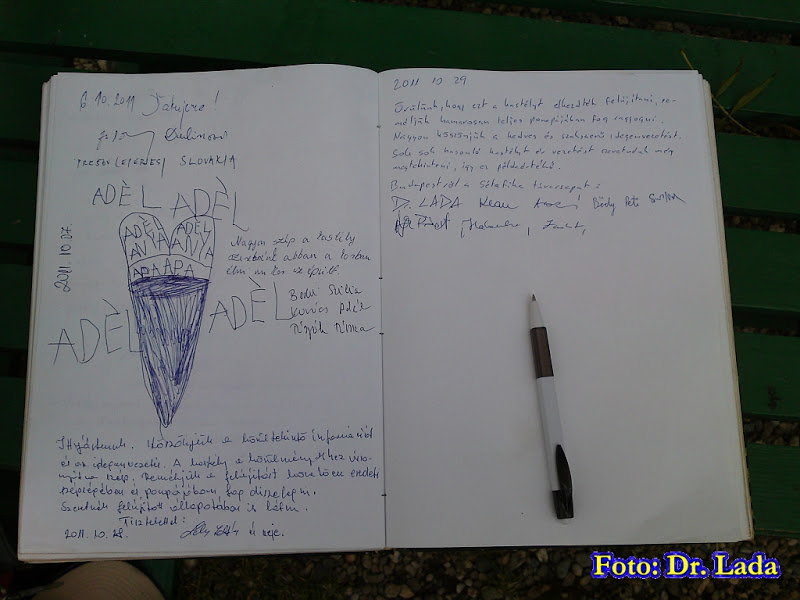 6. 10. 2011 Ďakujeme!
SLOVAKIA
ADÈL ADÈL
ADÈL ADÈL
ANYA ANYA
APA APA
2011. 10. 07.
Nagyon szép a kastély
szeretnénk abban a korban
élni mikor ez épült.
ADÈL
ADÈL
Itt jártunk. Köszönjük a körültekintő információt
és az idegenvezetést. A kastély a körülményekhez visz-
nyítva szép. Reméljük a felújítást követően eredeti
szépségében és pompájában fog díszelegni.
Szeretnénk felújított állapotában is látni.
Tisztelettel:
2011. 10. 28. és neje.
2011 10 29
Örülünk, hogy ezt a kastélyt elkezdték felújítani, re-
méljük hamarosan teljes pompájában fog ragyogni.
Nagyon köszönjük a kedves és szakszerű idegenvezetést.
Sok sok hasonló kastélyt és vezetést szeretnénk még
megtekinteni, így ez példaértékű.
Budapestről a Sétafika túracsapat:
Dr. LADA
Foto: Dr. Lada